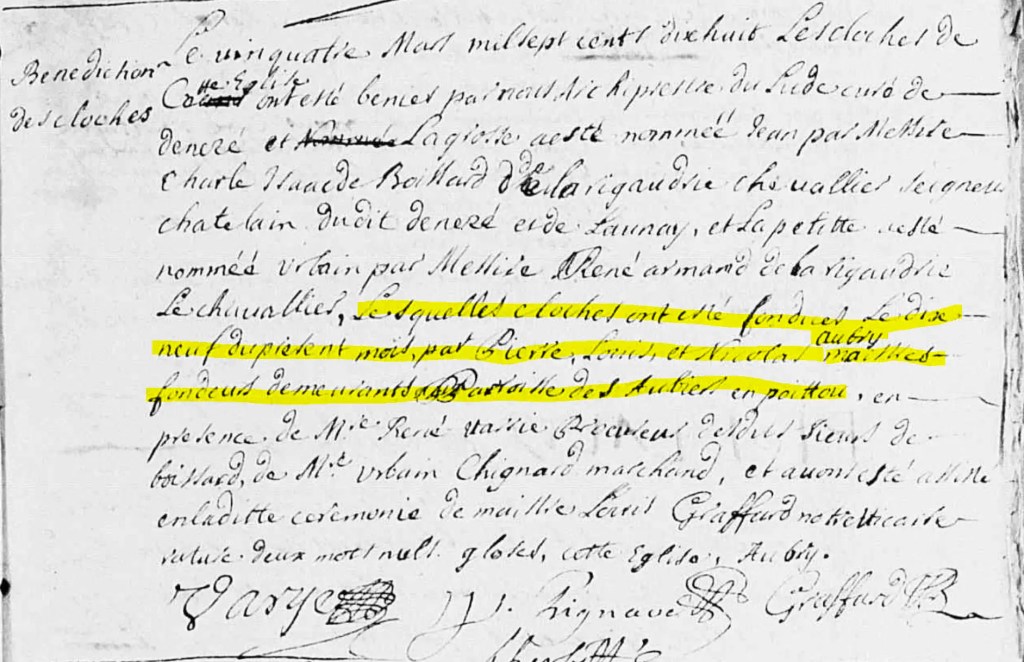 Benediction
des cloches
Le vinquatre Mars mil sept cents dixhuit Les cloches de
cette Eglise ont esté benies par nous Archiprestre du Lude curé de
deneré et nommée La grosse a esté nommée Jean par Messire
Charle Isaac de Boissard de la rigaudrie chevallier seigneur
chatelain dudit deneré et de Launay, et La petitte a esté
nommée Urbain par Messire René armand de la rigaudrie
Le chevallier, Lesquelles cloches ont esté fondues Le dix
neuf du present mois, par Pierre, Louis, et Nicolas aubry maistres
fondeurs demeurants Parroisse des Aubiers en poittou, en
presence de Mre René Varye Procureur desdits sieurs de
boissard, de Mre Urbain Chignard marchand, et avons esté assisté
en laditte ceremonie de maistre Louis Graffard notre vicaire
rature deux mots nuls gloses, cette Eglise, Aubry.
Varye
Graffard